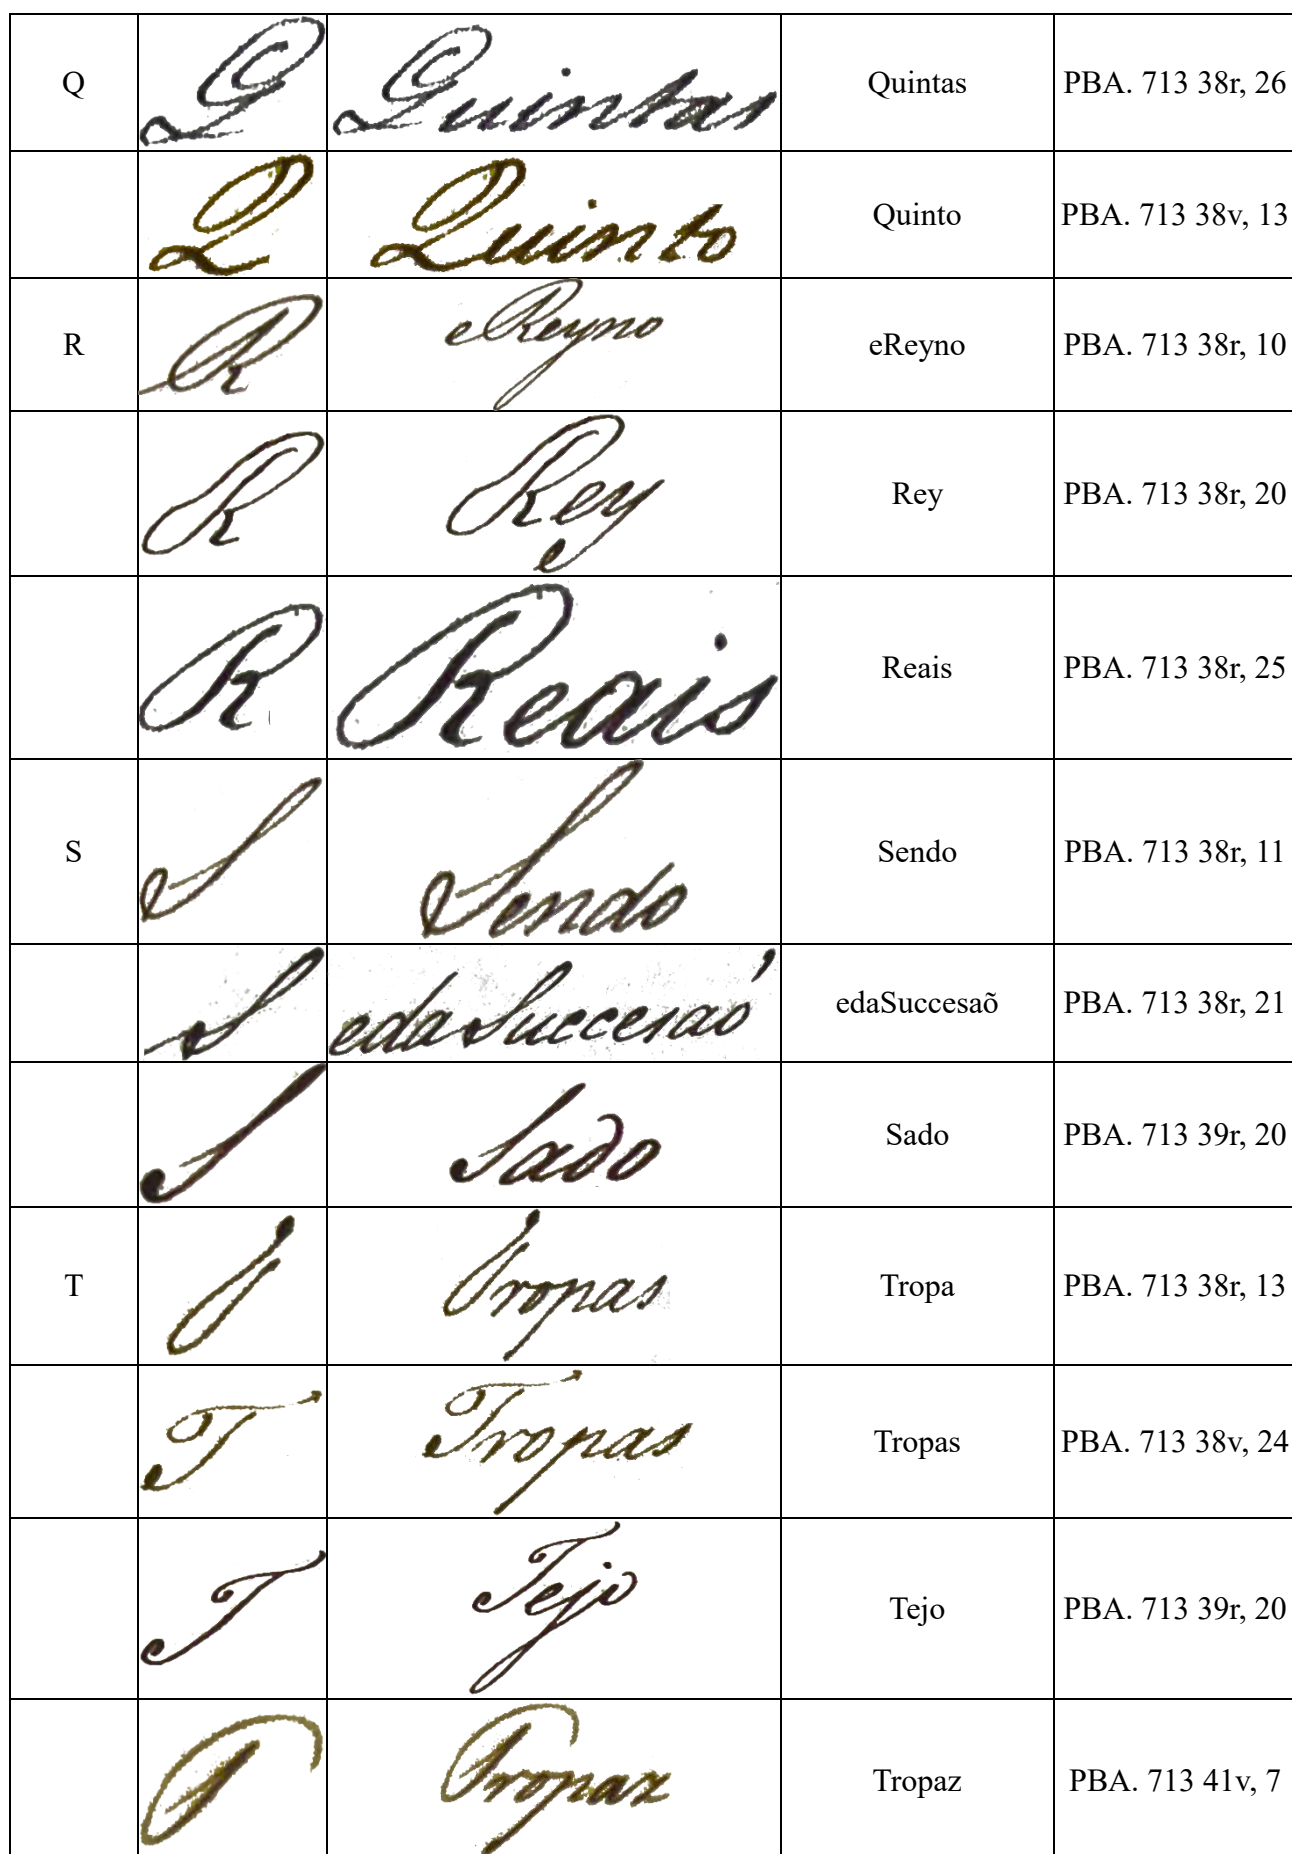 Q Q Quintas Quintas PBA. 713 38r, 26
Q Quinto Quinto PBA. 713 38v, 13
R R eReyno eReyno PBA. 713 38r, 10
R Rey Rey PBA. 713 38r, 20
R Reais Reais PBA. 713 38r, 25
S S Sendo Sendo PBA. 713 38r, 11
S edaSuccesaó edaSuccesaõ PBA. 713 38r, 21
S Sado Sado PBA. 713 39r, 20
T T Tropas Tropa PBA. 713 38r, 13
T Tropas Tropas PBA. 713 38v, 24
T Tejo Tejo PBA. 713 39r, 20
T Tropaz Tropaz PBA. 713 41v, 7